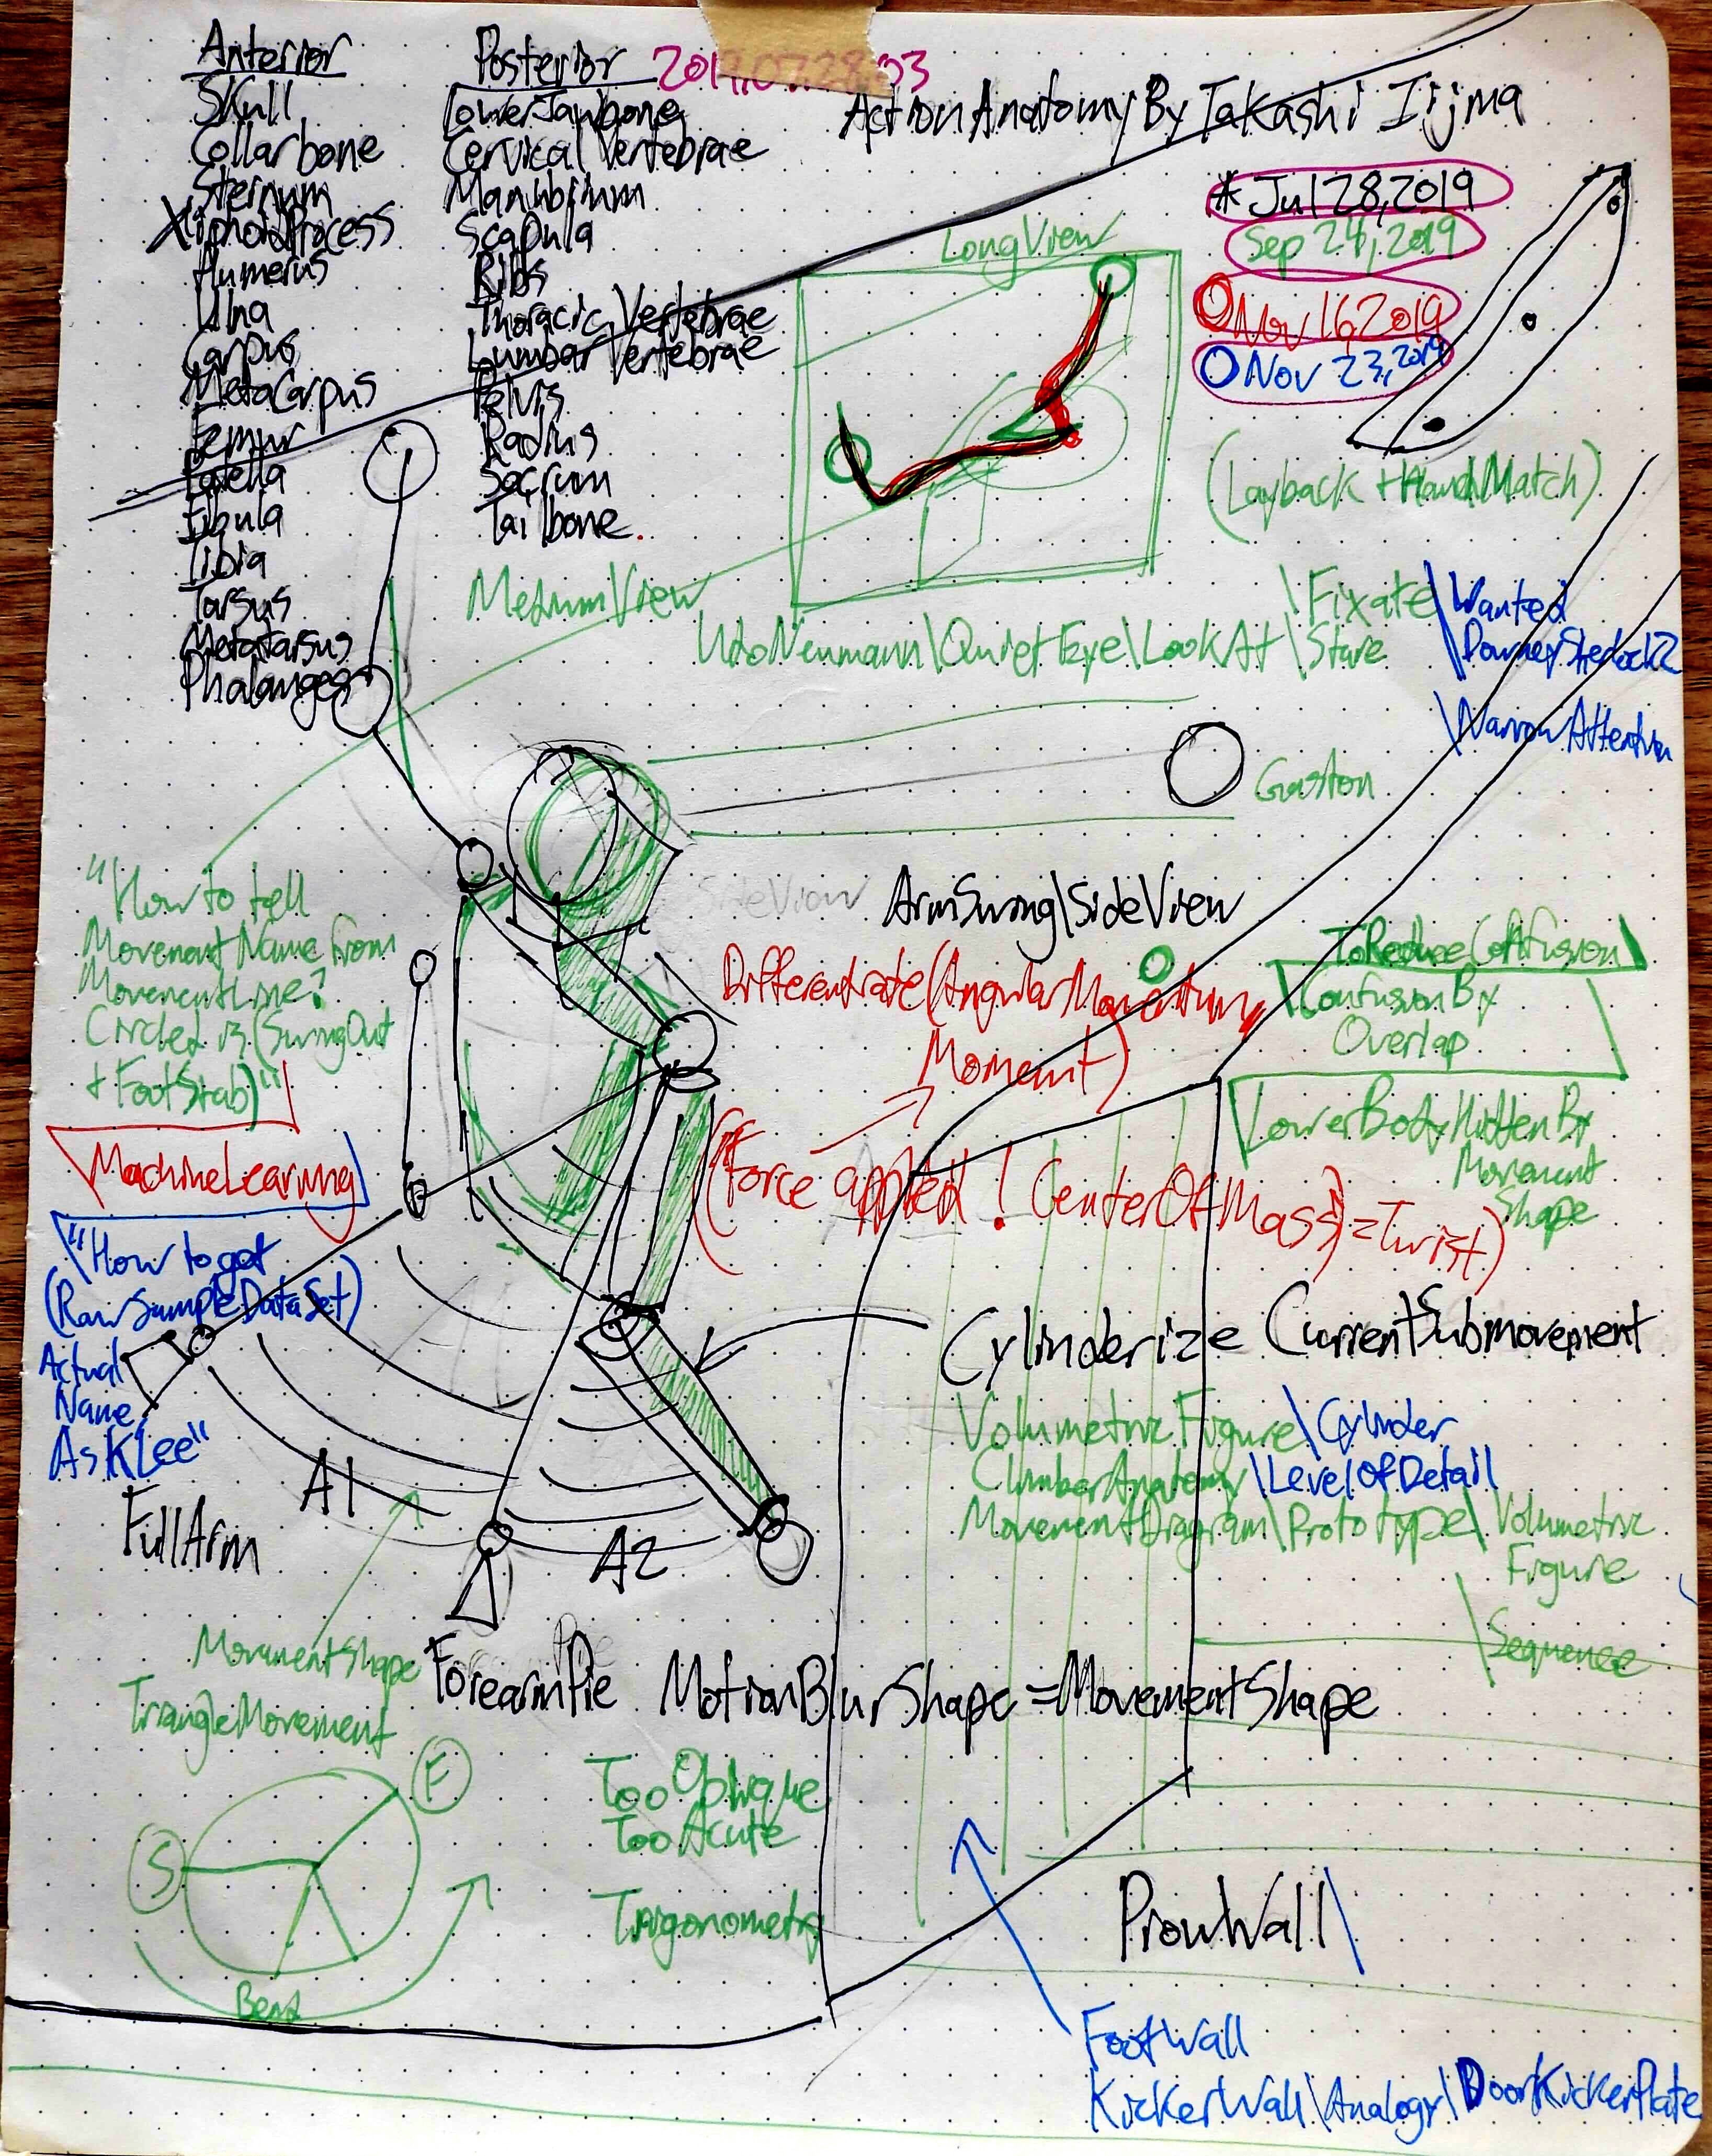 Anterior
Skull
Collarbone
Sternum
XiphoidProcess
Humerus
Ulna
Carpus
MetaCarpus
Femur
Patella
Fibula
Tibia
Tarsus
Metatarsus
Phalanges
Posterior
LowerJawbone
Cervical Vertebrae
Manubrium
Scapula
Ribs
Thoracic Vertebrae
Lumbar Vertebrae
Pelvis
Radius
Sacrum
Tailbone.
2019.07.28.03
ActionAnatomyByTakashi Iijma
*Jul 28,2019
Sep 24,2019
Nov 16,2019
Nov 23,2019
LongView
(Layback +HandMatch)
MediumView
UdoNeumann\QuietEye\LookAt\Stare
\Fixate
\Wanted
\NarrowAttention
Gaston
SideView
ArmSwing\SideView
"How to tell
MovementName from
MovementLine?
Circled is (SwingOut
+FootStab)"
\MachineLearning
\"How to get
(RawSampleDataSet)
Actual
Name,
AskLee"
Differentiate(AngularMomentum,
Moment)
(Force applied ! CenterOfMass)=Twist)
ToReduceConfusion\
\ConfusionBy
Overlap
\LowerBodyHiddenBy
Movement
Shape
Cylinderize CurrentSubmovement
VolumetricFigure\Cylinder
ClimberAnatomy\LevelOfDetail
MovementDiagram\Prototype\Volumetric
Figure
\Sequence
A1
FullArm
A2
MovementShape
TriangleMovement
ForearmPie
MotionBlurShape=MovementShape
F
S
Bend
TooOblique
TooAcute
Trigonometry
ProwWall\
FootWall
KickerWall\Analogy\DoorKickerPlate